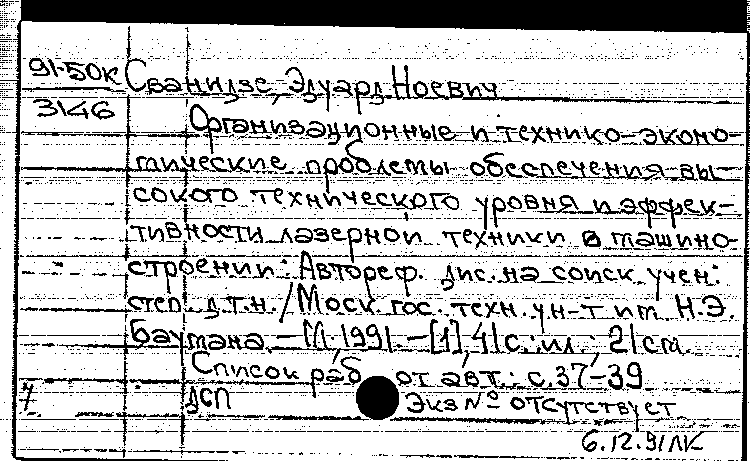 91-50к Сванидзе, Эдуард Ноевич
3146
Организационные и технико-эконо-
мические проблемы обеспечения вы-
сокого технического уровня и эффек-
тивности лазерной техники в машино-
строении: Автореф. дис. на соиск. учен.
степ. д.т.н. / Моск. гос. техн. ун-т им. Н.Э.
Баумана. – М. 1991. – [1], 41 с.: ил.; 21 см.
Список раб. от авт.: с. 37-39
ДСП Экз № отсутствует
6.12.91 ЛК